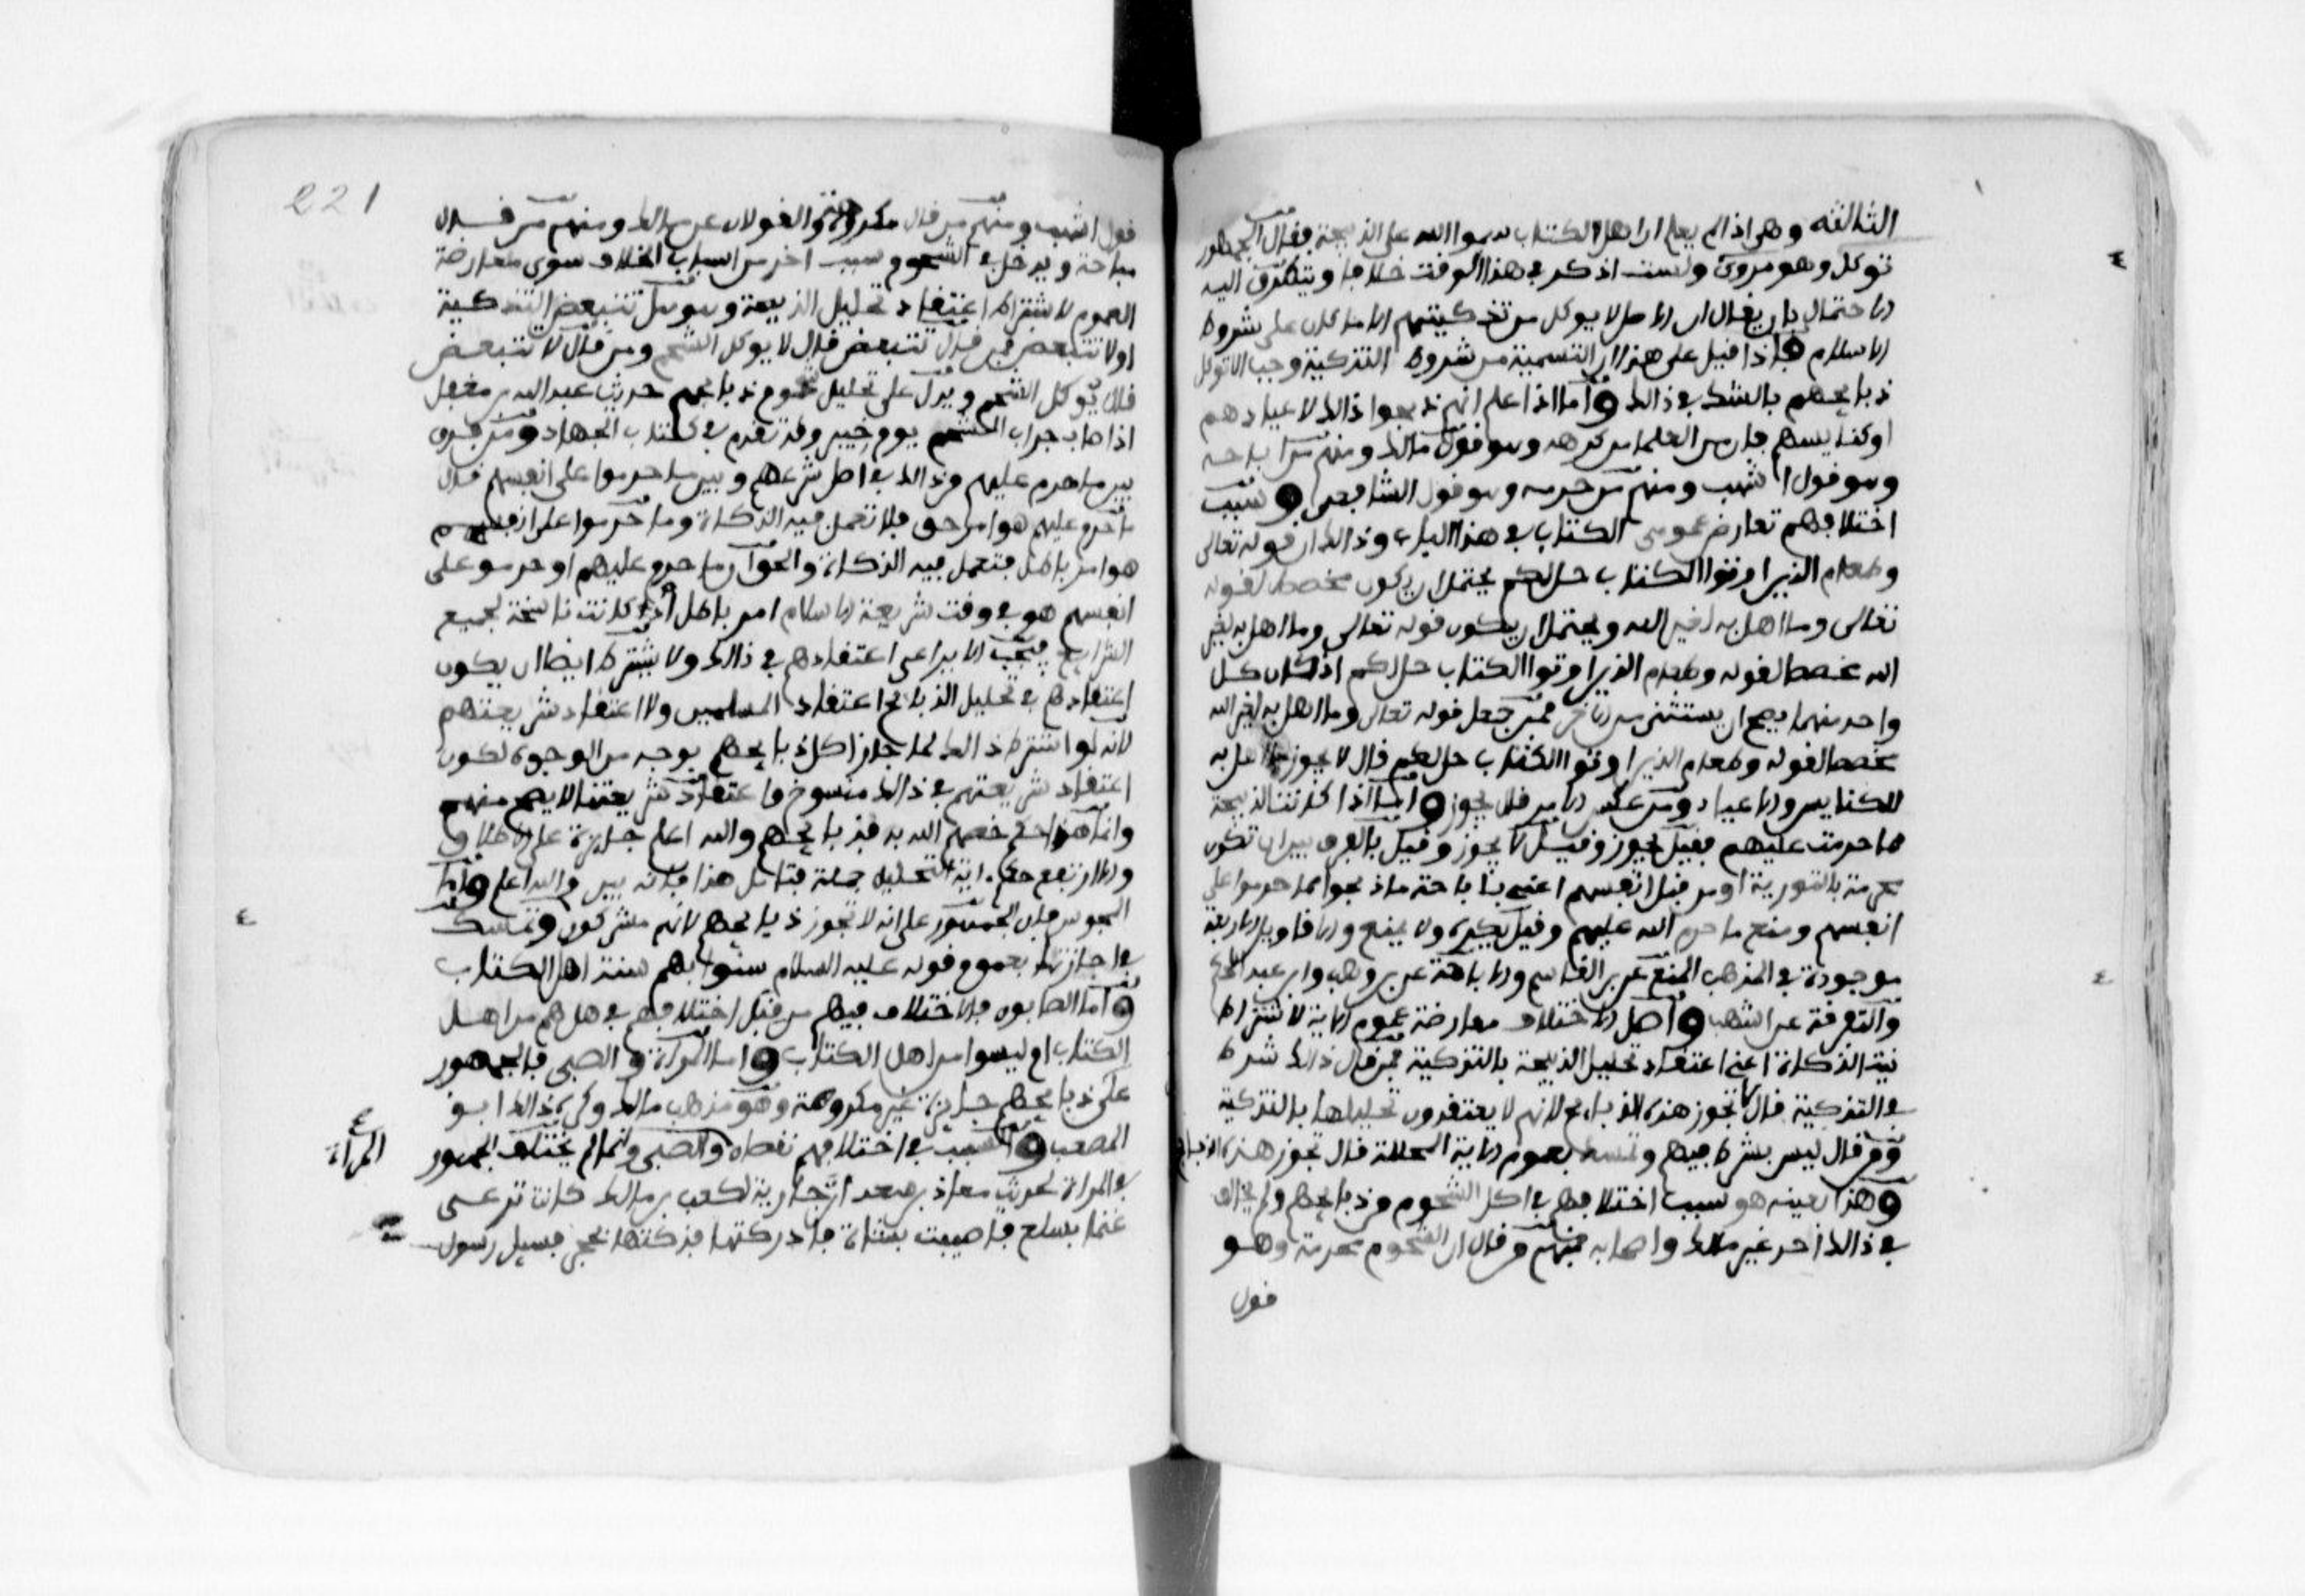 الثالثة وهي اذا لم يعلم ان اهل الكتاب سموا الله على الذبيحة فقال الجمهور
توكل وهو مروي ولست اذكر في هذا الوقت خلافا ويتطرق اليه
الاحتمال بان يقال ان الاصل لا يوكل من تذكيتهم الا ما كان على شروط
الاسلام فاذا قيل على هذا ان التسمية من شروط التذكية وجب الا توكل
ذبايحهم بالشك في ذالك واما اذا علم انهم ذبحوا ذالك لاعيادهم
او كنايسهم فان من العلما من كرهه وهو قول مالك ومنهم من اباحه
وهو قول اشهب ومنهم من حرمه وهو قول الشافعي وسبب
اختلافهم تعارض عمومي الكتاب في هذا الباب وذالك ان قوله تعالى
وطعام الذين اوتوا الكتاب حل لكم يحتمل ان يكون مخصصا لقوله
تعالى وما اهل به لغير الله ويحتمل ان يكون قوله تعالى وما اهل به لغير
الله مخصصا لقوله وطعام الذين اوتوا الكتاب حل لكم اذ كان كل
واحد منهما يصح ان يستثنى من الاخر فمن جعل قوله تعالى وما اهل به لغير الله
مخصصا لقوله وطعام الذين اوتوا الكتاب حل لكم قال لا يجوز ما اهل به
للكنايس والاعياد ومن عكس الامر قال يجوز واما اذا كانت الذبيحة
مما حرمت عليهم فقيل يجوز وقيل لا يجوز وقيل بالفرق بين ان تكون
محرمة بالتورية او من قبل انفسهم اعني باباحة ما ذبحوا مما حرموا على
انفسهم ومنع ما حرم الله عليهم وقيل يكره ولا يمنع والاقاويل الاربعة
موجودة في المذهب المنع عن بن القاسم والاباحة عن بن وهب وابن عبد الحكم
والتفرقة عن اشهب واصل الاختلاف معارضة عموم الاية لاشتراط
نية الذكاة اعني اعتقاد تحليل الذبيحة بالتذكية فمن قال ذالك شرط
في التذكية قال لا تجوز هذه الذبايح لانهم لا يعتقدون تحليلها بالتذكية
ومن قال ليس بشرط فيهم وتمسك بعموم الاية المحللة قال تجوز هذه الذبايح
وهذا بعينه هو سبب اختلافهم في اكل الشحوم من ذبايحهم ولم يخالف
في ذالك احد غير مالك واصحابه فمنهم من قال ان الشحوم محرمة وهو
قول
221
قول اشهب ومنهم من قال مكروهة والقولان عن مالك ومنهم من قال
مباحة ويدخل في الشحوم سبب اخر من اسباب الخلاف سوى معارضة
العموم لاشتراط اعتقاد تحليل الذبيحة وهو هل تتبعض التذكية
او لا تتبعض فمن قال تتبعض قال لا يوكل الشحم ومن قال لا تتبعض
قال يوكل الشحم ويدل على تحليل شحوم ذبايحهم حديث عبد الله بن مغفل
اذ اصاب جراب الشحم يوم خيبر وقد تقدم في كتاب الجهاد ومن فرق
بين ما حرم عليهم من ذالك في اصل شرعهم وبين ما حرموا على انفسهم قال
ما حرم عليهم هو امر حق فلا تعمل فيه الذكاة وما حرموا على انفسهم
هو امر باطل فتعمل فيه الذكاة والحق ان ما حرم عليهم او حرموا على
انفسهم هو في وقت شريعة الاسلام امر باطل اذ كانت ناسخة لجميع
الشرايع فيجب الا يراعى اعتقادهم في ذالك ولا يشترط ايضا ان يكون
اعتقادهم في تحليل الذبايح اعتقاد المسلمين ولا اعتقاد شريعتهم
لانه لو اشترط ذالك لما جاز اكل ذبايحهم بوجه من الوجوه لكون
اعتقاد شريعتهم في ذالك منسوخ واعتقاد شريعتنا لا يصح منهم
وانما هذا حكم خصهم الله به فذبايحهم والله اعلم جايزة على الاطلاق
والا ارتفع حكم اية التحليل جملة فتامل هذا فانه بين والله اعلم واما
المجوس فان الجمهور على انه لا تجوز ذبايحهم لانهم مشركون وتمسك
في اجازتها بعموم قوله عليه السلام سنوا بهم سنة اهل الكتاب
واما الصابون فالاختلاف فيهم من قبل اختلافهم في هل هم من اهل
الكتاب او ليسوا من اهل الكتاب واما المراة والصبي فالجمهور
على ذبايحهم جايزة غير مكروهة وهو مذهب مالك وكره ذالك ابو
المصعب والسبب في اختلافهم نقصان والصبي وانما لم يختلف الجمهور
المراة
في المراة لحديث معاذ بن سعد ان جارية لكعب بن مالك كانت ترعى
غنما بسلع فاصيبت بشاة فادركتها فذكتها بحجر فسيل رسول